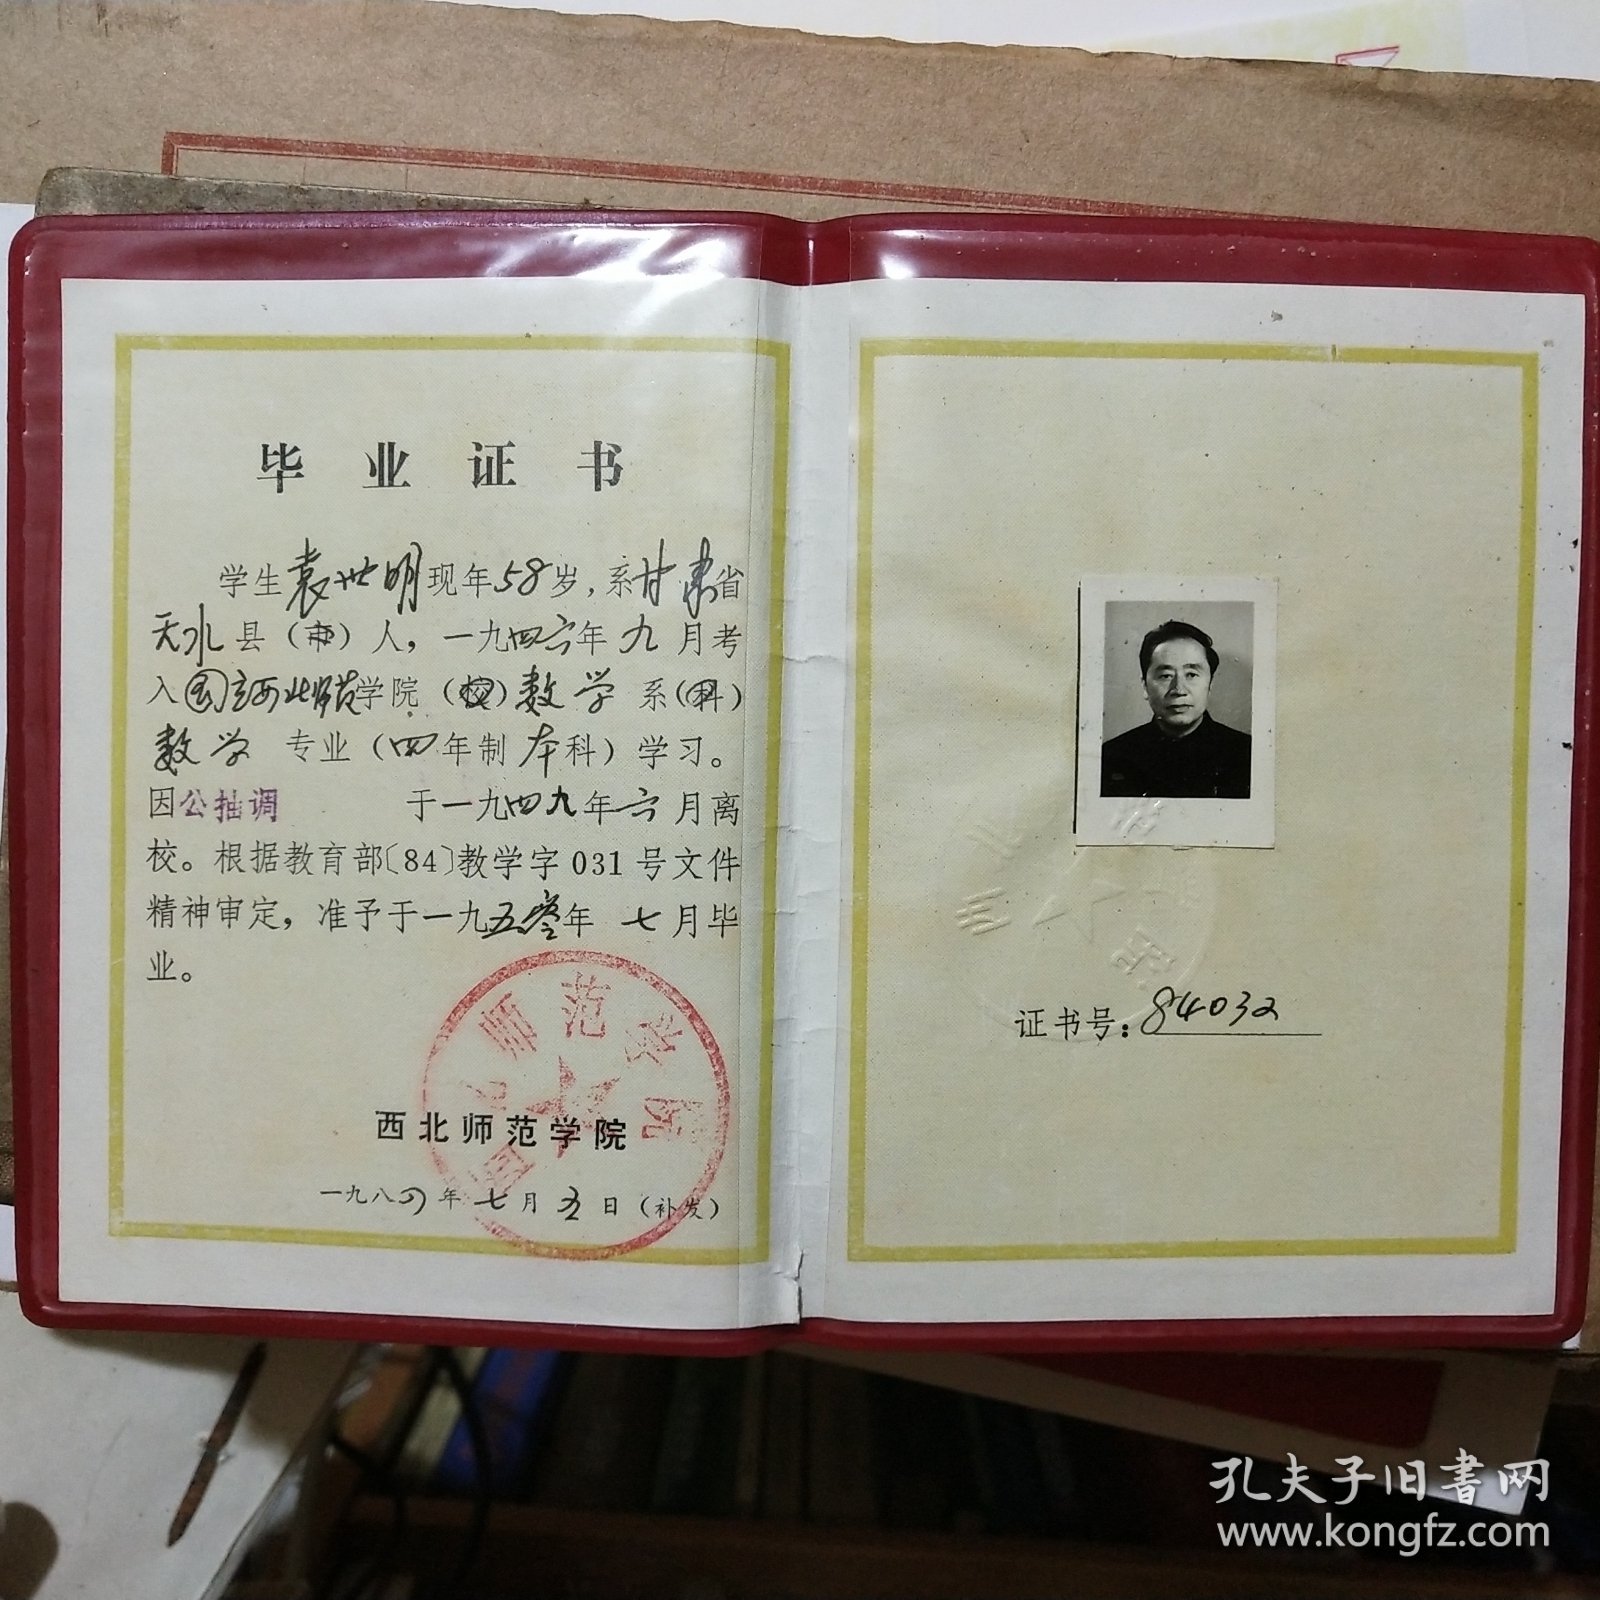 毕业证书
学生袁世明现年58岁，系甘肃省
天水县（市）人，一九四六年九月考
入国立西北师范学院（校）数学系（科）
数学专业（四年制本科）学习。
因公抽调于一九四九年六月离
校。根据教育部〔84〕教学字031号文件
精神审定，准予于一九五零年七月毕
业。
西北师范学院
西北师范学院
一九八四年七月五日（补发）
证书号：84032
孔夫子旧书网
www.kongfz.com